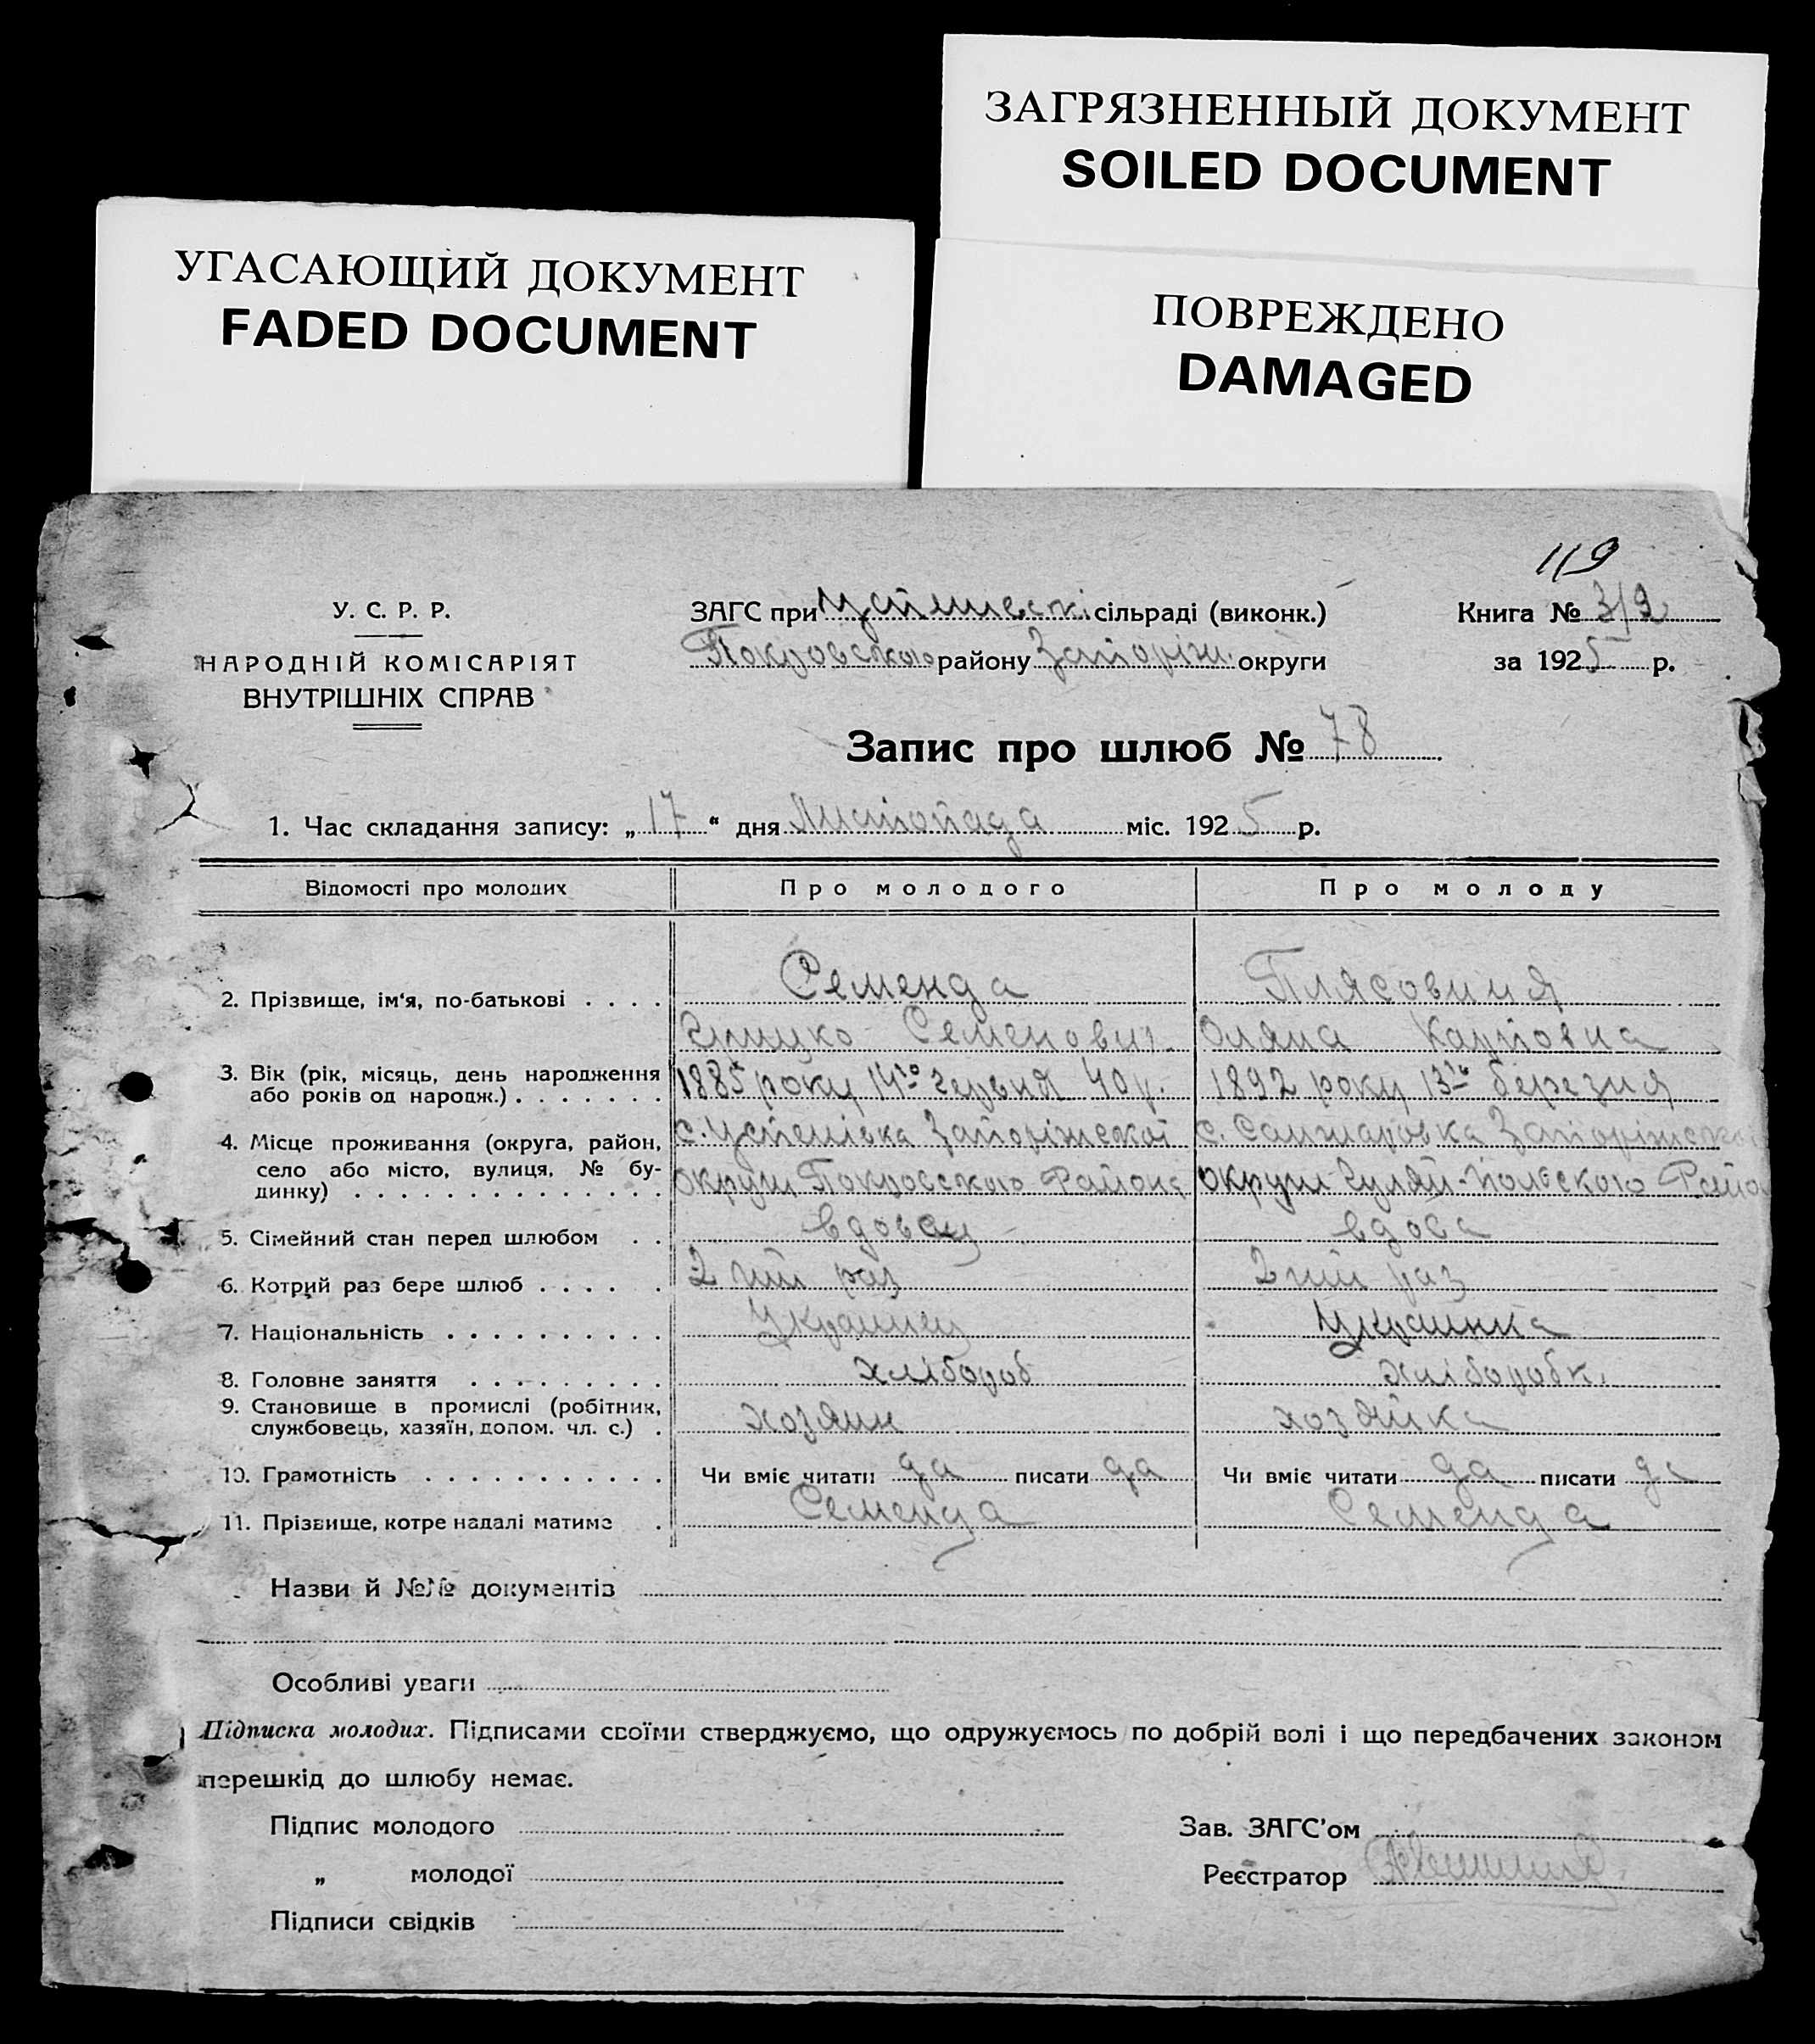 ЗАГРЯЗНЕННЫЙ ДОКУМЕНТ
SOILED DOCUMENT
УГАСАЮЩИЙ ДОКУМЕНТ
FADED DOCUMENT
ПОВРЕЖДЕНО
DAMAGED
119
У. С. Р. Р.
НАРОДНІЙ КОМІСАРІЯТ
ВНУТРІШНІХ СПРАВ
ЗАГС при сільраді (виконк.)
Покровського району Запоріж. округи
Книга № 3/9
за 1925 р.
Запис про шлюб № 78
1. Час складання запису: „17“ дня Листопада міс. 1925 р.
Відомості про молодих Про молодого Про молоду
2. Прізвище, ім'я, по-батькові . . . . Семенда Плясовиця
Грицко Семенович Оляна Карповна
3. Вік (рік, місяць, день народження
або років од народж.) . . . . . . . 1885 року 14го червня 40 р. 1892 року 13го березня
4. Місце проживання (округа, район,
село або місто, вулиця, № бу-
динку) . . . . . . . . . . . . . . .
с. Успенівка Запоріжської с. Санжаровка Запоріжської
округи Покровского Района округи Гуляй-Польского Району
5. Сімейний стан перед шлюбом . . вдовец вдова
6. Котрий раз бере шлюб . . . . . 2гий раз 2гий раз
7. Національність . . . . . . . . . . Украинец Украинка
8. Головне заняття . . . . . . . . . хлібороб хліборобк.
9. Становище в промислі (робітник,
службовець, хазяїн, допом. чл. с.) . хозяин хозяйка
10. Грамотність . . . . . . . . . . . Чи вміє читати да писати да Чи вміє читати да писати да
11. Прізвище, котре надалі матиме . Семенда Семенда
Назви й №№ документів
Особливі уваги
Підписка молодих. Підписами своїми стверджуємо, що одружуємось по добрій волі і що передбачених законом
перешкід до шлюбу немає.
Підпис молодого
„ молодої
Підписи свідків
Зав. ЗАГС'ом
Реєстратор